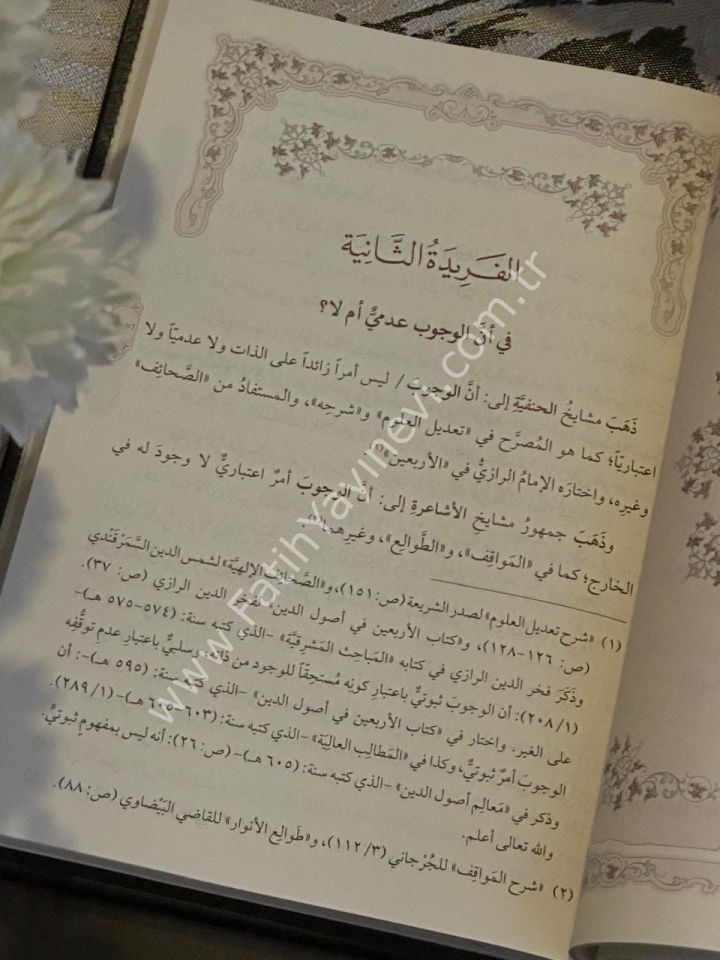 الفَرِيدَةُ الثَّانِيَة
في أنَّ الوجوب عدميٌّ أم لا؟
ذَهَبَ مشايخُ الحنفيَّةِ إلى: أنَّ الوجوبَ / ليس أمراً زائداً على الذات ولا عدميّاً ولا
اعتباريّاً؛ كما هو المُصرَّح في «تعديل العلوم» و«شرحِه»، والمستفادُ من «الصَّحائِف»
وغيرِه، واختارَه الإمامُ الرازيُّ في «الأربعين»(١).
وذَهَبَ جمهورُ مشايخِ الأشاعرةِ إلى: أنَّ الوجوبَ أمرٌ اعتباريٌّ لا وجودَ له في
الخارج؛ كما في «المَواقِف»، و«الطَّوالِع»، وغيرِهما(٢).
(١) «شرح تعديل العلوم» لصدر الشريعة (ص: ١٥١)، و«الصَّحائف الإلهيَّة» لشمس الدين السَّمَرْقَنْدي
(ص: ١٢٦-١٢٨)، و«كتاب الأربعين في أصول الدين» لفخر الدين الرازي (ص: ٣٧).
وذَكَرَ فخر الدين الرازي في كتابه «المَباحِث المَشرِقيَّة» -الذي كتبه سنة: (٥٧٤-٥٧٥ هـ)-
(٢٠٨/١): أن الوجوبَ ثبوتيٌّ باعتبار كونِه مُستحِقّاً للوجود من ذاته، وسلبيٌّ باعتبارِ عدمِ توقُّفِه
على الغير. واختار في «كتاب الأربعين في أصول الدين» -الذي كتبه سنة: (٥٩٥ هـ)-: أن
الوجوبَ أمرٌ ثبوتيٌّ، وكذا في «المَطالِب العالِيَة» -الذي كتبه سنة: (٦٠٣-٦٠٥ هـ)- (٢٨٩/١).
وذكر في «مَعالِم أصول الدين» -الذي كتبه سنة: (٦٠٥ هـ)- (ص: ٢٦): أنه ليس بمفهومٍ ثبوتيٍّ.
والله تعالى أعلم.
(٢) «شرح المَواقِف» للجُرْجاني (١١٢/٣)، و«طَوالِع الأنوار» للقاضي البَيْضاوي (ص: ٨٨).
www.FatihYayinevi.com.tr